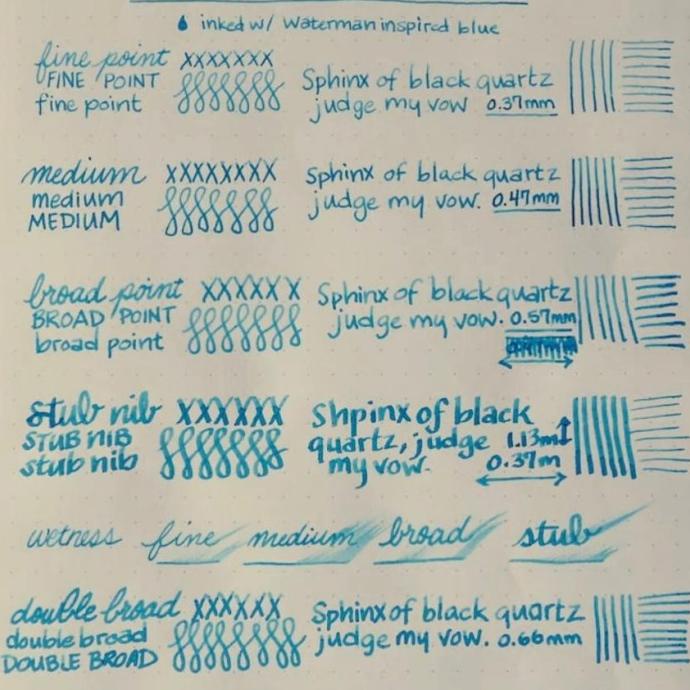 inked w/ Waterman inspired blue
fine point XXXXXXX
FINE POINT Sphinx of black quartz
fine point judge my vow 0.37mm
medium XXXXXXXX Sphinx of black quartz
medium judge my vow. 0.47mm
MEDIUM
broad point XXXXXX Sphinx of black quartz
BROAD POINT judge my vow. 0.57mm
broad point
stub nib XXXXXX Shpinx of black
STUB NIB quartz, judge 1.13m
stub nib my vow. 0.37m
wetness fine medium broad stub
double broad XXXXXX Sphinx of black quartz
double broad judge my vow. 0.66mm
DOUBLE BROAD